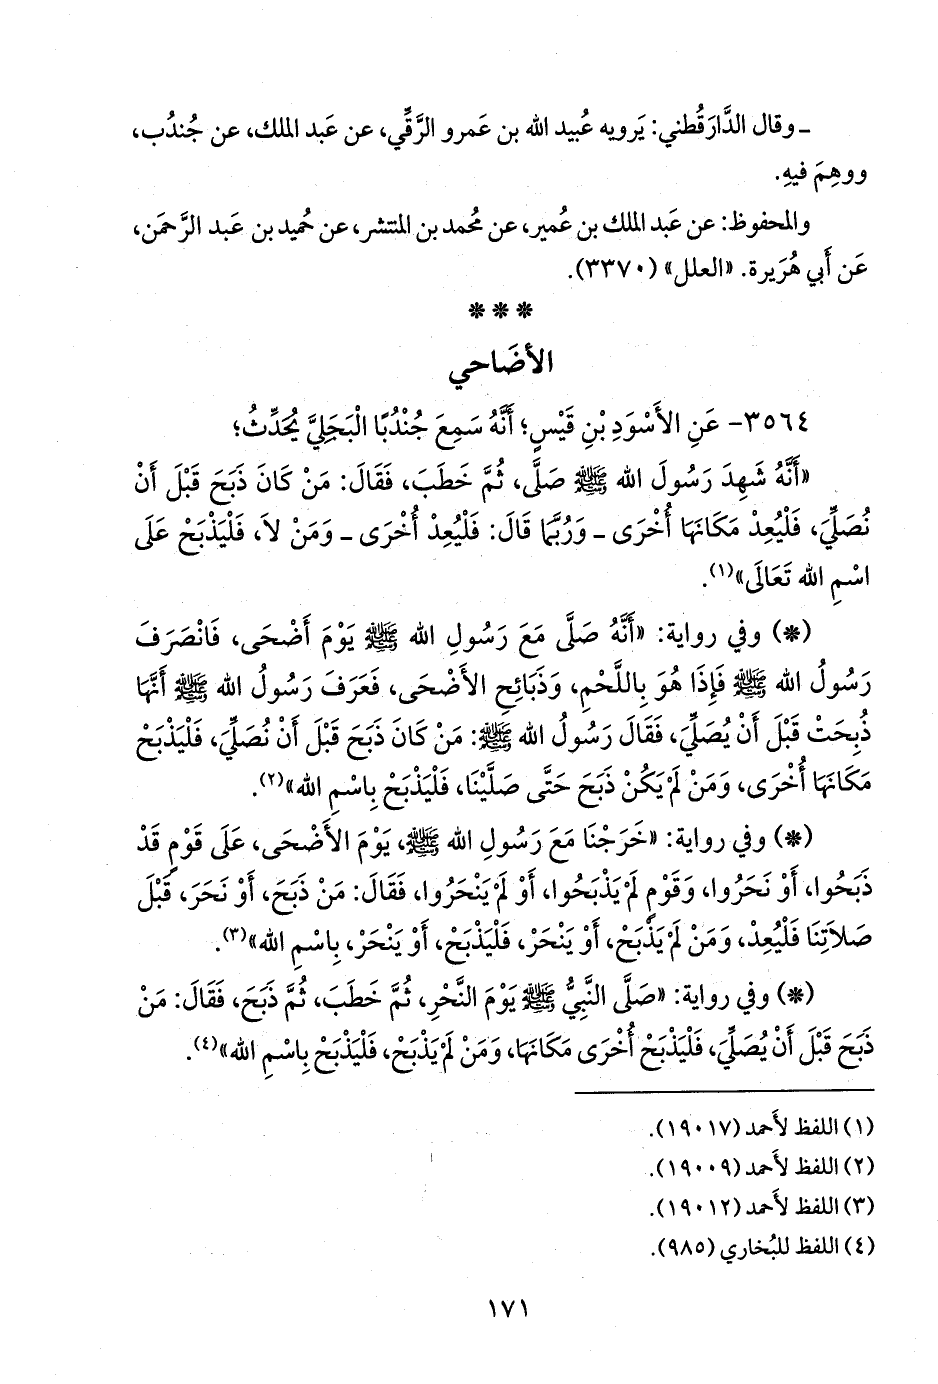 ـ وقال الدَّارَقُطني: يَرويه عُبيد الله بن عَمرو الرَّقِّي، عن عَبد الملك، عن جُندُب،
ووهِمَ فيهِ.
والمحفوظ: عن عَبد الملك بن عُمير، عن مُحمد بن المنتشر، عن حُميد بن عَبد الرَّحمَن،
عَن أَبي هُرَيرة. «العلل» (٣٣٧٠).
* * *
الأَضَاحي
٣٥٦٤- عَنِ الأَسْوَدِ بْنِ قَيْسٍ؛ أَنَّهُ سَمِعَ جُنْدُبًا الْبَجَلِيَّ يُحَدِّثُ؛
«أَنَّهُ شَهِدَ رَسُولَ الله ﷺ صَلَّى، ثُمَّ خَطَبَ، فَقَالَ: مَنْ كَانَ ذَبَحَ قَبْلَ أَنْ
نُصَلِّيَ، فَلْيُعِدْ مَكَانَهَا أُخْرَى ـ وَرُبَّمَا قَالَ: فَلْيُعِدْ أُخْرَى ـ وَمَنْ لاَ، فَلْيَذْبَحْ عَلَى
اسْمِ الله تَعَالَى»(١).
(*) وفي رواية: «أَنَّهُ صَلَّى مَعَ رَسُولِ الله ﷺ يَوْمَ أَضْحَى، فَانْصَرَفَ
رَسُولُ الله ﷺ فَإِذَا هُوَ بِاللَّحْمِ، وَذَبَائِحِ الأَضْحَى، فَعَرَفَ رَسُولُ الله ﷺ أَنَّهَا
ذُبِحَتْ قَبْلَ أَنْ يُصَلِّيَ، فَقَالَ رَسُولُ الله ﷺ: مَنْ كَانَ ذَبَحَ قَبْلَ أَنْ نُصَلِّيَ، فَلْيَذْبَحْ
مَكَانَهَا أُخْرَى، وَمَنْ لَمْ يَكُنْ ذَبَحَ حَتَّى صَلَّيْنَا، فَلْيَذْبَحْ بِاسْمِ الله»(٢).
(*) وفي رواية: «خَرَجْنَا مَعَ رَسُولِ الله ﷺ، يَوْمَ الأَضْحَى، عَلَى قَوْمٍ قَدْ
ذَبَحُوا، أَوْ نَحَرُوا، وَقَوْمٍ لَمْ يَذْبَحُوا، أَوْ لَمْ يَنْحَرُوا، فَقَالَ: مَنْ ذَبَحَ، أَوْ نَحَرَ، قَبْلَ
صَلاَتِنَا فَلْيُعِدْ، وَمَنْ لَمْ يَذْبَحْ، أَوْ يَنْحَرْ، فَلْيَذْبَحْ، أَوْ يَنْحَرْ، بِاسْمِ الله»(٣).
(*) وفي رواية: «صَلَّى النَّبِيُّ ﷺ يَوْمَ النَّحْرِ، ثُمَّ خَطَبَ، ثُمَّ ذَبَحَ، فَقَالَ: مَنْ
ذَبَحَ قَبْلَ أَنْ يُصَلِّيَ، فَلْيَذْبَحْ أُخْرَى مَكَانَهَا، وَمَنْ لَمْ يَذْبَحْ، فَلْيَذْبَحْ بِاسْمِ الله»(٤).
(١) اللفظ لأَحمد (١٩٠١٧).
(٢) اللفظ لأَحمد (١٩٠٠٩).
(٣) اللفظ لأَحمد (١٩٠١٢).
(٤) اللفظ للبُخاري (٩٨٥).
١٧١